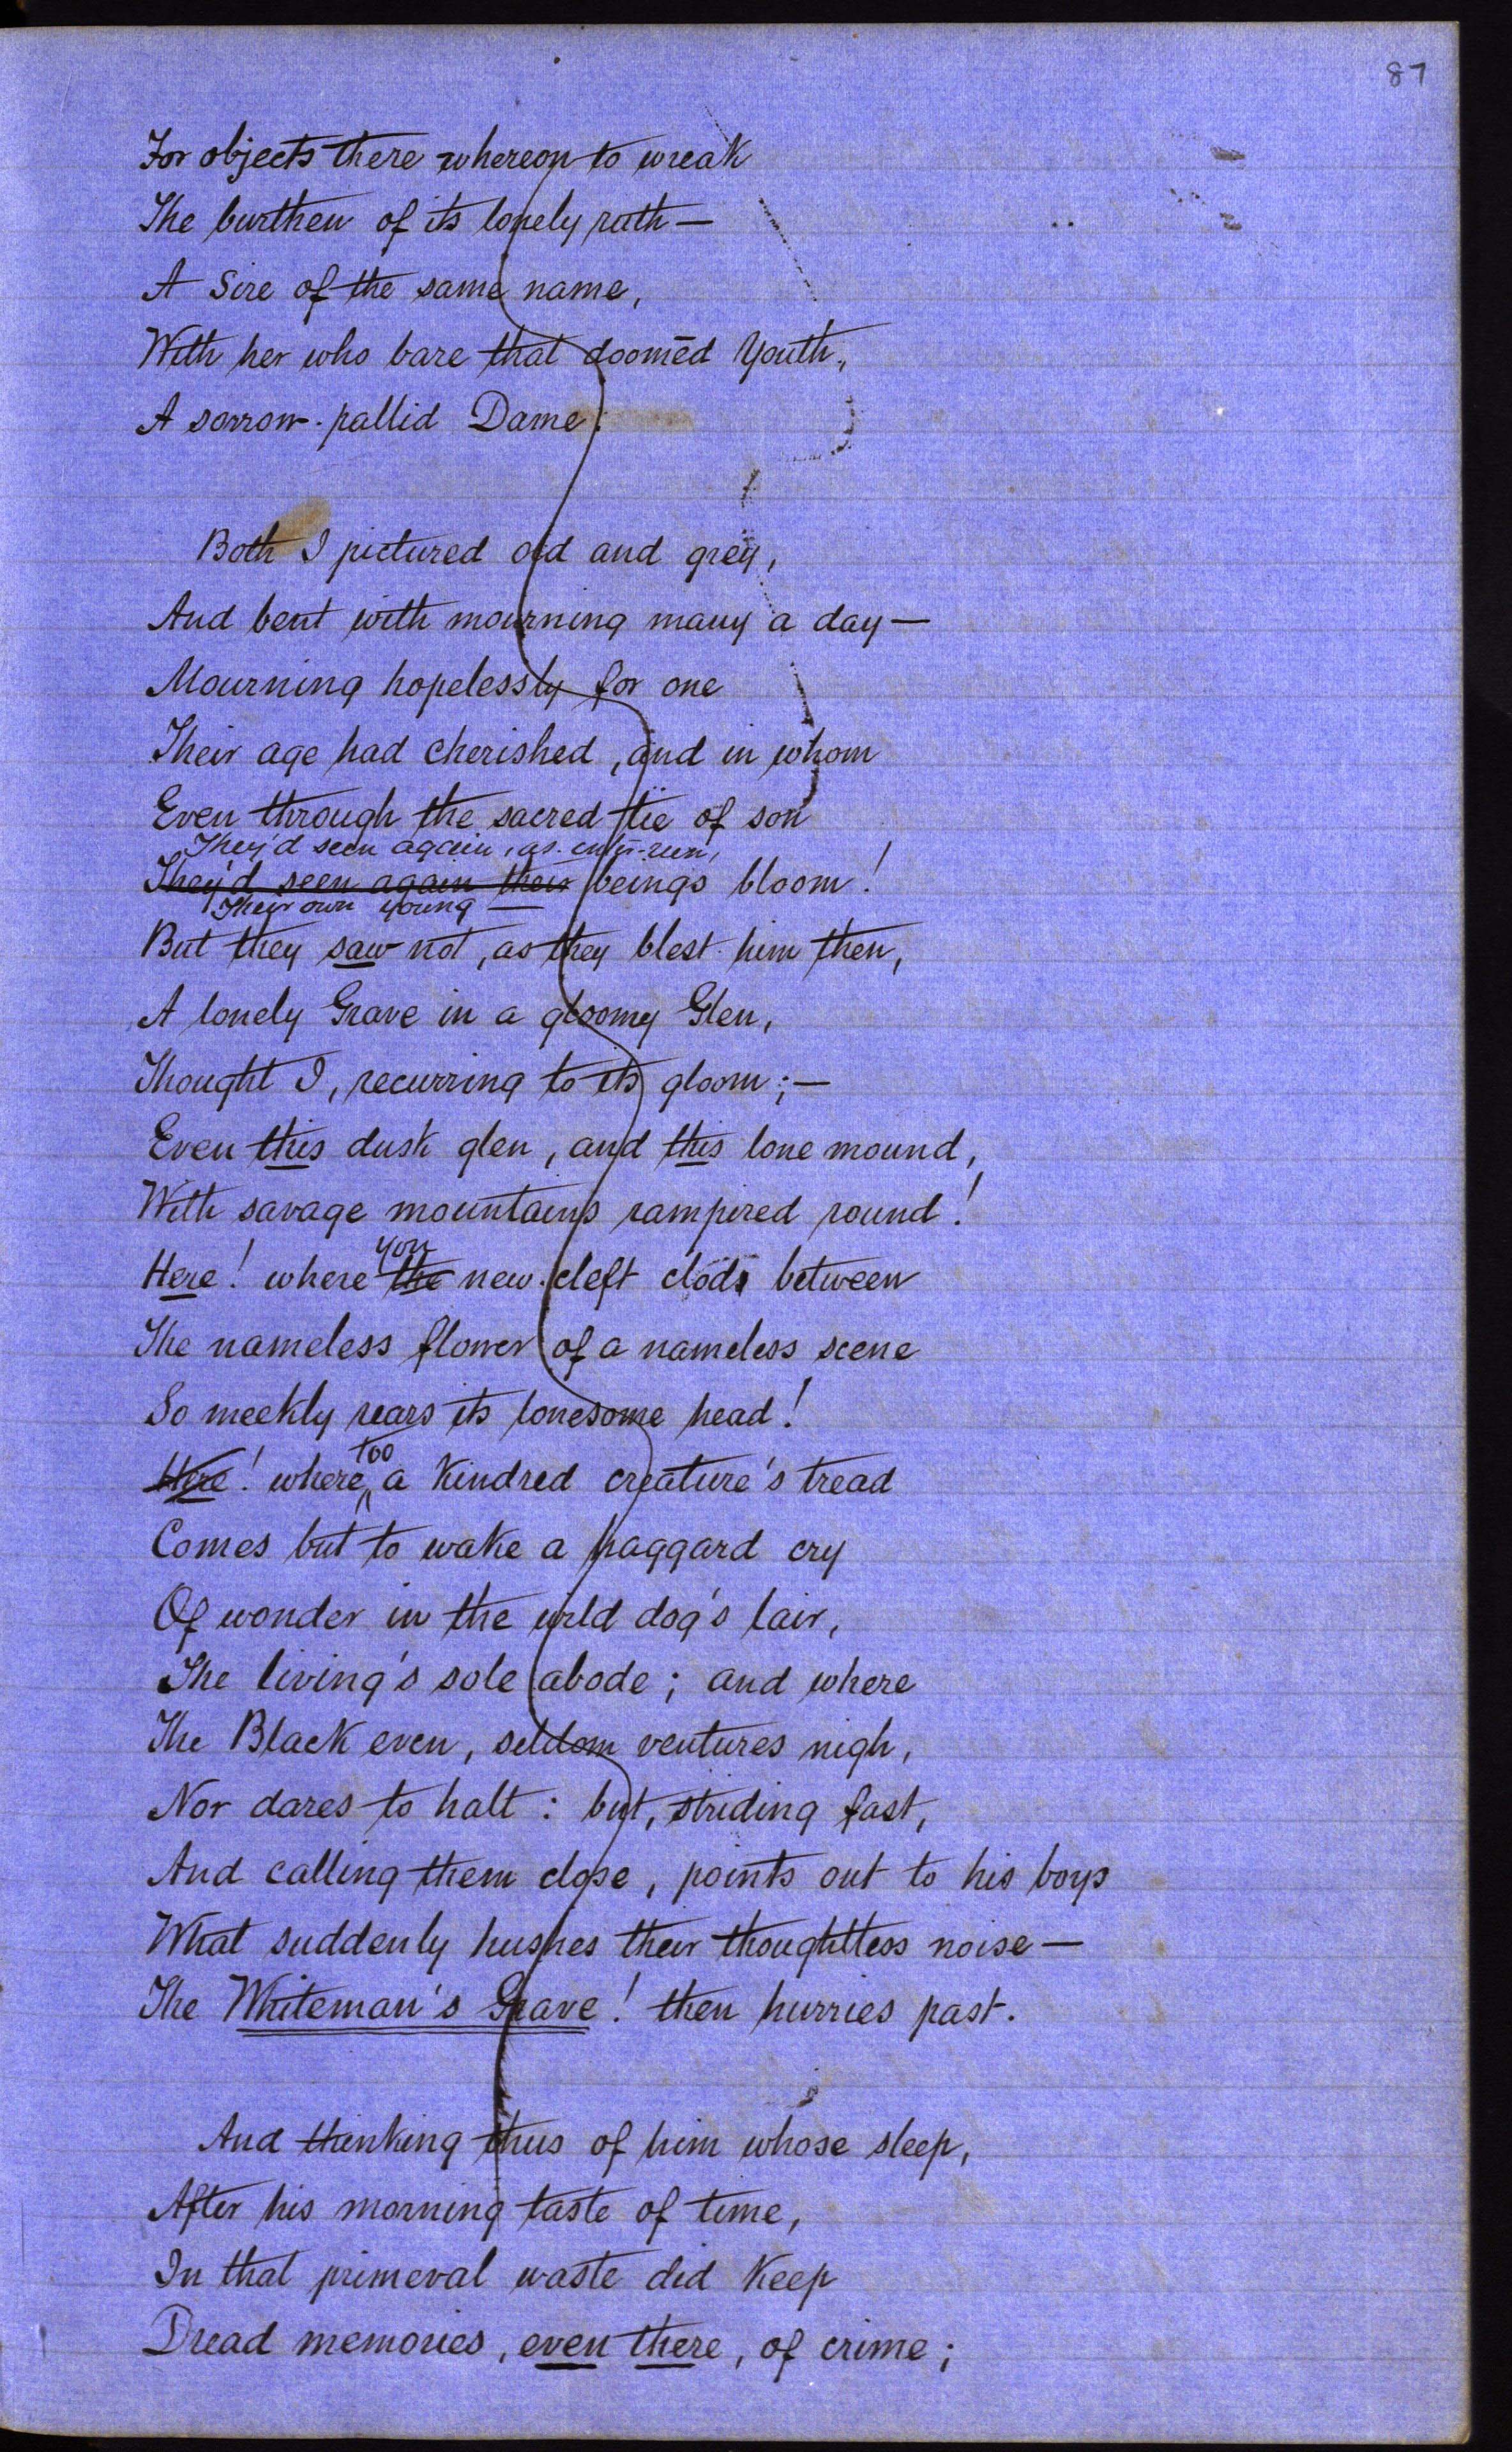 87
For objects there whereon to wreak
The burthen of its lonely ruth—
A Sire of the same name,
With her who bare that doomēd Youth,
A sorrow-pallid Dame:
Both I pictured old and grey,
And bent with mourning many a day—
Mourning hopelessly for one
Their age had cherished, and in whom
Even through the sacred tie of son
They'd seen again, as
They'd seen again their beings bloom!
Their own young —
But they saw not, as they blest him then,
A lonely Grave in a gloomy Glen,
Thought I, recurring to its gloom;—
Even this dusk glen, and this lone mound,
With savage mountains rampired round!
you
Here! where the new-cleft clods between
The nameless flower of a nameless scene
So meekly rears its lonesome head!
too
Here! where a Kindred creature's tread
Comes but to wake a haggard cry
Of wonder in the wild dog's lair,
The living's sole abode; and where
The Black even, seldom ventures nigh,
Nor dares to halt: but, striding fast,
And calling them close, points out to his boys
What suddenly hushes their thoughtless noise—
The Whiteman's Grave! then hurries past.
And thinking thus of him whose sleep,
After his morning taste of time,
In that primeval waste did Keep
Dread memories, even there, of crime;